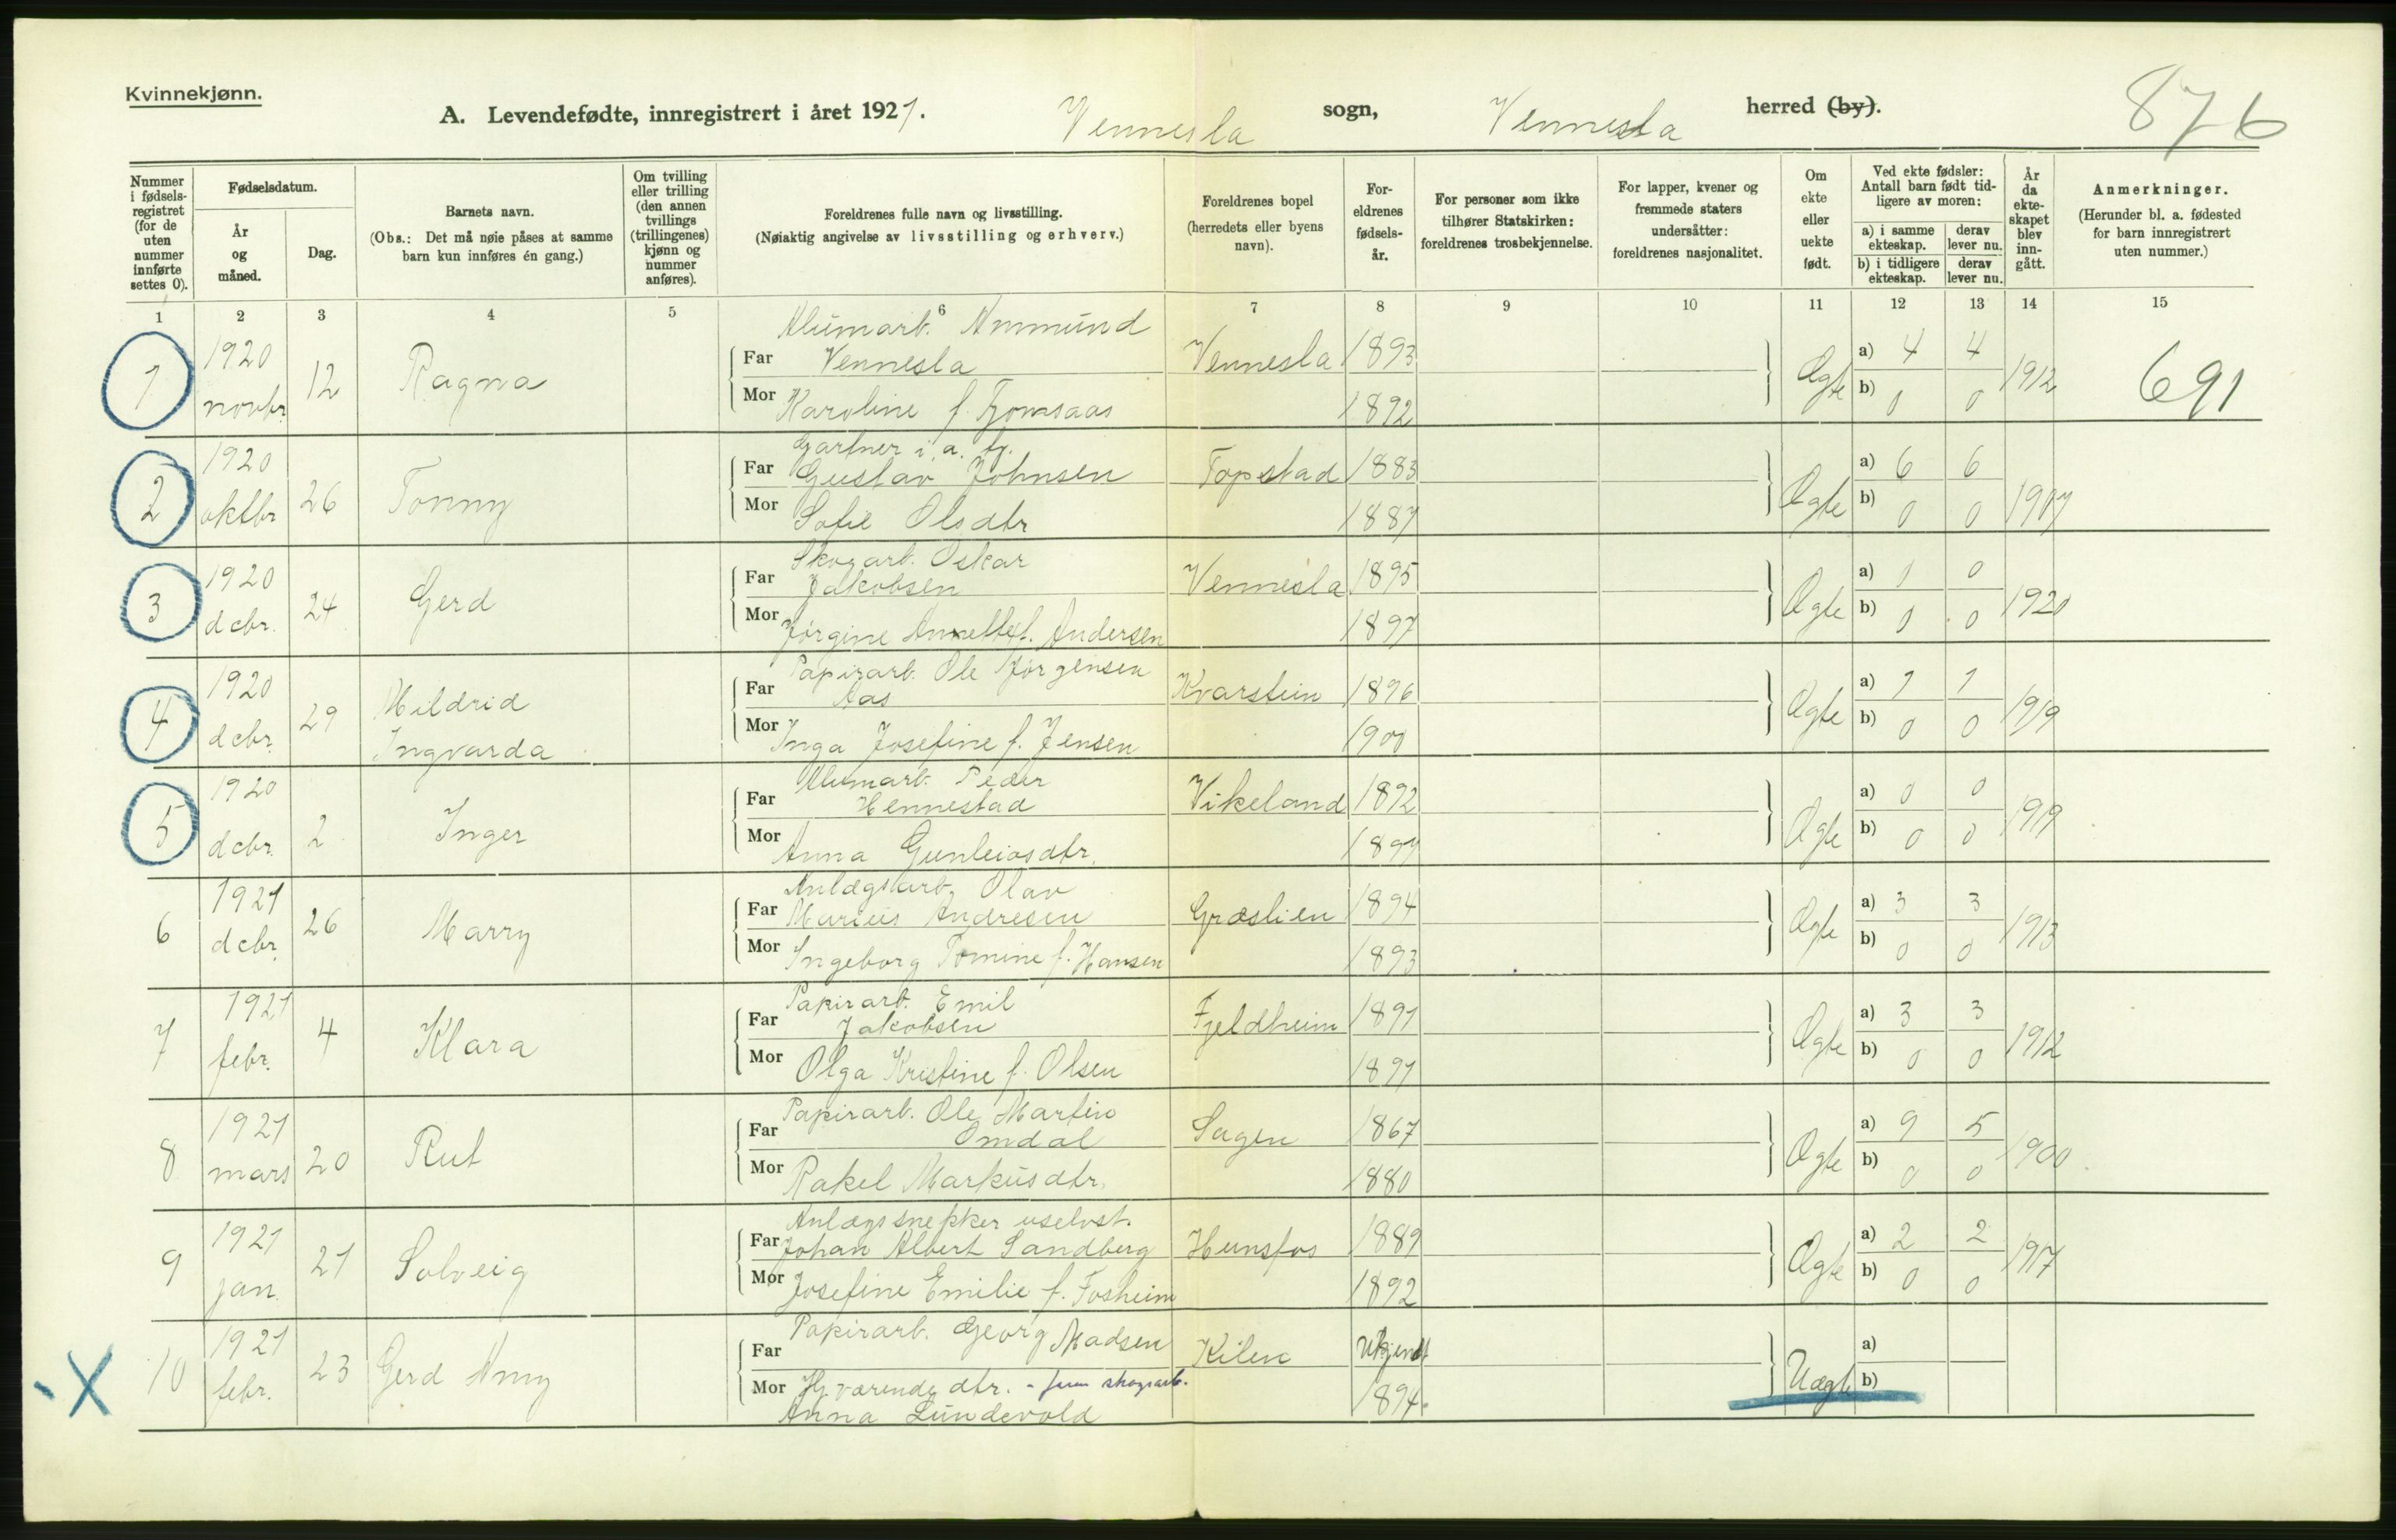 Kvinnekjønn.
A. Levendefødte, innregistrert i året 1921. Vennesla sogn, Vennesla herred (by). 876
Nummer i fødsels-registret (for de uten nummer innførte settes 0).
Fødselsdatum.
År og måned.
Dag.
Barnets navn.
(Obs.: Det må nøie påses at samme barn kun innføres én gang.)
Om tvilling eller trilling (den annen tvillings (trillingenes) kjønn og nummer anføres).
Foreldrenes fulle navn og livsstilling.
(Nøiaktig angivelse av livsstilling og erhverv.)
Foreldrenes bopel (herredets eller byens navn).
For-eldrenes fødsels-år.
For personer som ikke tilhører Statskirken: foreldrenes trosbekjennelse.
For lapper, kvener og fremmede staters undersåtter: foreldrenes nasjonalitet.
Om ekte eller uekte født.
Ved ekte fødsler: Antall barn født tid-ligere av moren:
a) i samme ekteskap. derav lever nu.
b) i tidligere ekteskap. derav lever nu.
År da ekte-skapet blev inn-gått.
Anmerkninger.
(Herunder bl. a. fødested for barn innregistrert uten nummer.)
1 2 3 4 5 6 7 8 9 10 11 12 13 14 15
1 1920 novbr. 12 Ragna
Alumarb. Ammund
Far Vennesla Vennesla 1893
Mor Karoline f. Tjomsaas 1892
Ægte a) 4 4 b) 0 0 1912 691
2 1920 oktbr 26 Tonny
Gartner i. a. tj.
Far Gustav Johnsen Topstad 1883
Mor Sofie Olsdtr 1887
Ægte a) 6 6 b) 0 0 1907
3 1920 dcbr. 24 Gerd
Skogarb. Oskar
Far Jakobsen Vennesla 1895
Mor Jørgine Annette f. Andersen 1897
Ægte a) 1 0 b) 0 0 1920
4 1920 dcbr. 29 Mildrid Ingvarda
Papirarb. Ole Jørgensen
Far Aas Kvarstein 1896
Mor Inga Josefine f. Jensen 1900
Ægte a) 1 1 b) 0 0 1919
5 1920 dcbr. 2 Inger
Alumarb. Peder
Far Hennestad Vikeland 1892
Mor Anna Gunleiosdtr. 1897
Ægte a) 0 0 b) 0 0 1919
6 1921 dcbr. 26 Marry
Anlægsarb. Olav
Far Marius Andresen Græslien 1894
Mor Ingeborg Tomine f. Hansen 1893
Ægte a) 3 3 b) 0 0 1913
7 1921 febr. 4 Klara
Papirarb. Emil
Far Jakobsen Fjeldheim 1891
Mor Olga Kristine f. Olsen 1891
Ægte a) 3 3 b) 0 0 1912
8 1921 mars 20 Rut
Papirarb. Ole Martin
Far Omdal Sagen 1867
Mor Rakel Markusdtr. 1880
Ægte a) 9 5 b) 0 0 1900
9 1921 jan. 21 Solveig
Anlægssnekker uselvst.
Far Johan Albert Sandberg Hunsfos 1889
Mor Josefine Emilie f. Fosheim 1892
Ægte a) 2 2 b) 0 0 1917
X 10 1921 febr. 23 Gerd Amy
Papirarb. Georg Madsen
Far Kilen Ukjendt
Mor Hj. værende dtr. - faren skogsarb. 1894.
Anna Lundevold
Uægte a) b)